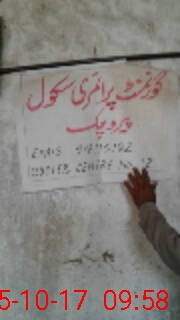 گورنمنٹ پرائمری سکول
پیرو چک
EMIS
CENTRE No. 12
5-10-17 09:58